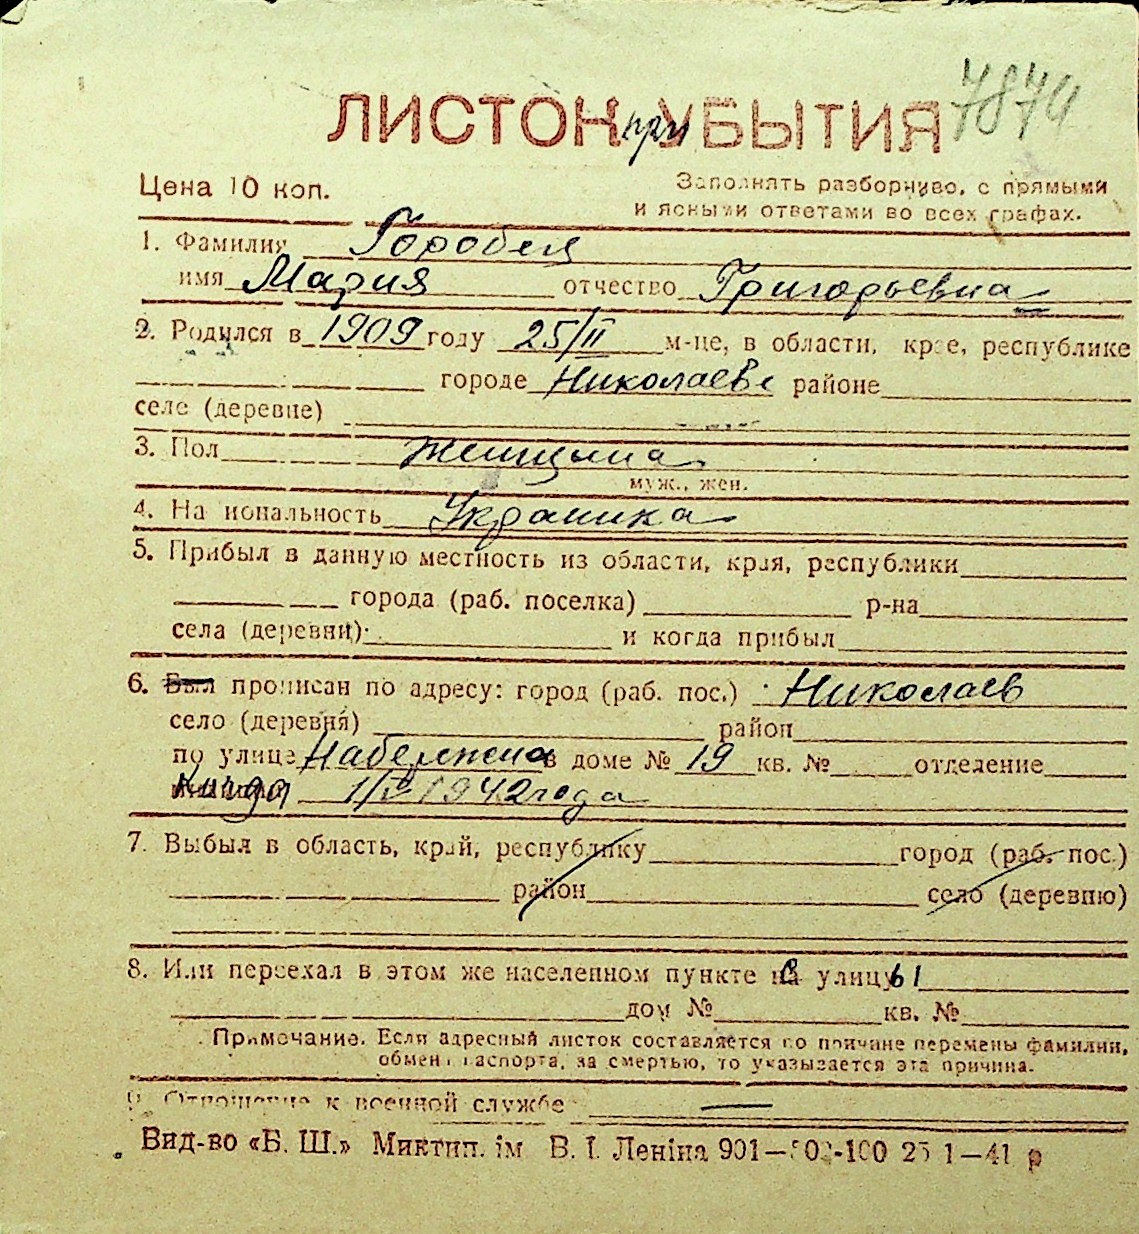 7874
ЛИСТОК при УБЫТИЯ
Цена 10 коп.
Заполнять разборчиво, с прямыми
и ясными ответами во всех графах.
1. Фамилия Горобец
имя Мария отчество Григорьевна
2. Родился в 1909 году 25/II м-це, в области, крае, республике
городе Николаеве районе
селе (деревне)
3. Пол Женщина
муж., жен.
4. Национальность Украинка
5. Прибыл в данную местность из области, края, республики
города (раб. поселка) р-на
села (деревни) и когда прибыл
6. Был прописан по адресу: город (раб. пос.) Николаев
село (деревня) район
по улице в доме № 19 кв. № отделение
1942 года
7. Выбыл в область, край, республику город (раб. пос.)
район село (деревню)
8. Или переехал в этом же населенном пункте с улицы
дом № кв. №
Примечание. Если адресный листок составляется по причине перемены фамилии,
обмена паспорта, за смертью, то указывается эта причина.
9. Отношение к военной службе —
Вид-во «Б. Ш.» Миктип. ім В. І. Леніна 901— -100 25 1—41 р